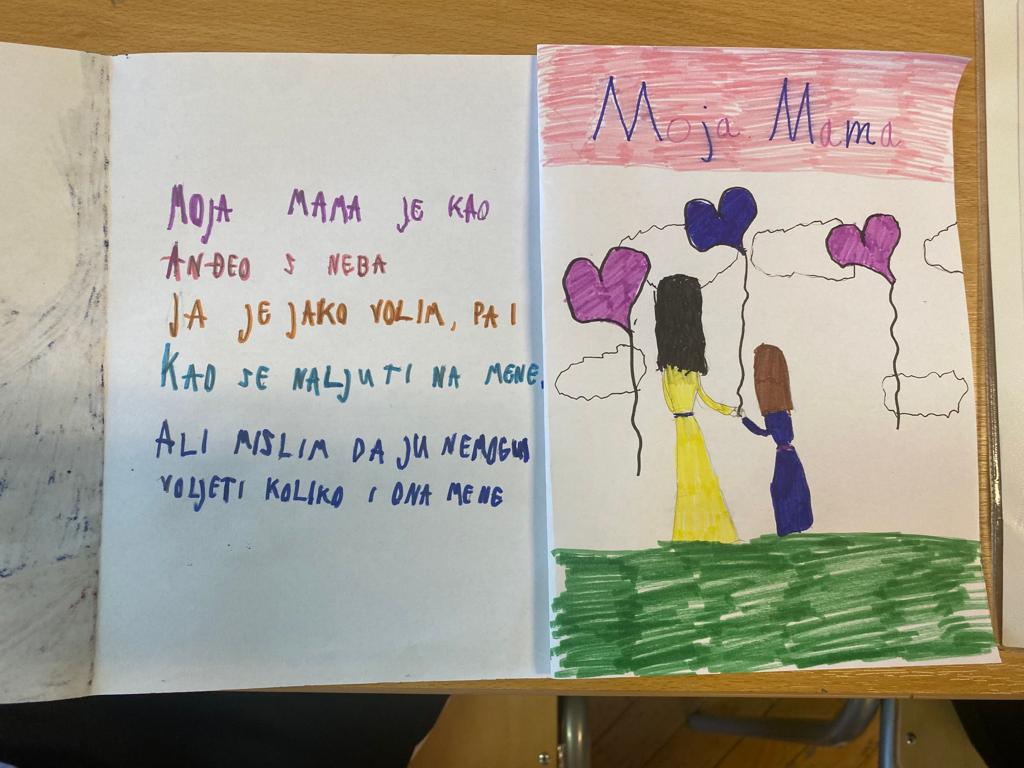 MOJA MAMA JE KAO
ANĐEO S NEBA
JA JE JAKO VOLIM, PA I
KAO SE NALJUTI NA MENE.
ALI MISLIM DA JU NEMOGU
VOLJETI KOLIKO I ONA MENE
Moja Mama